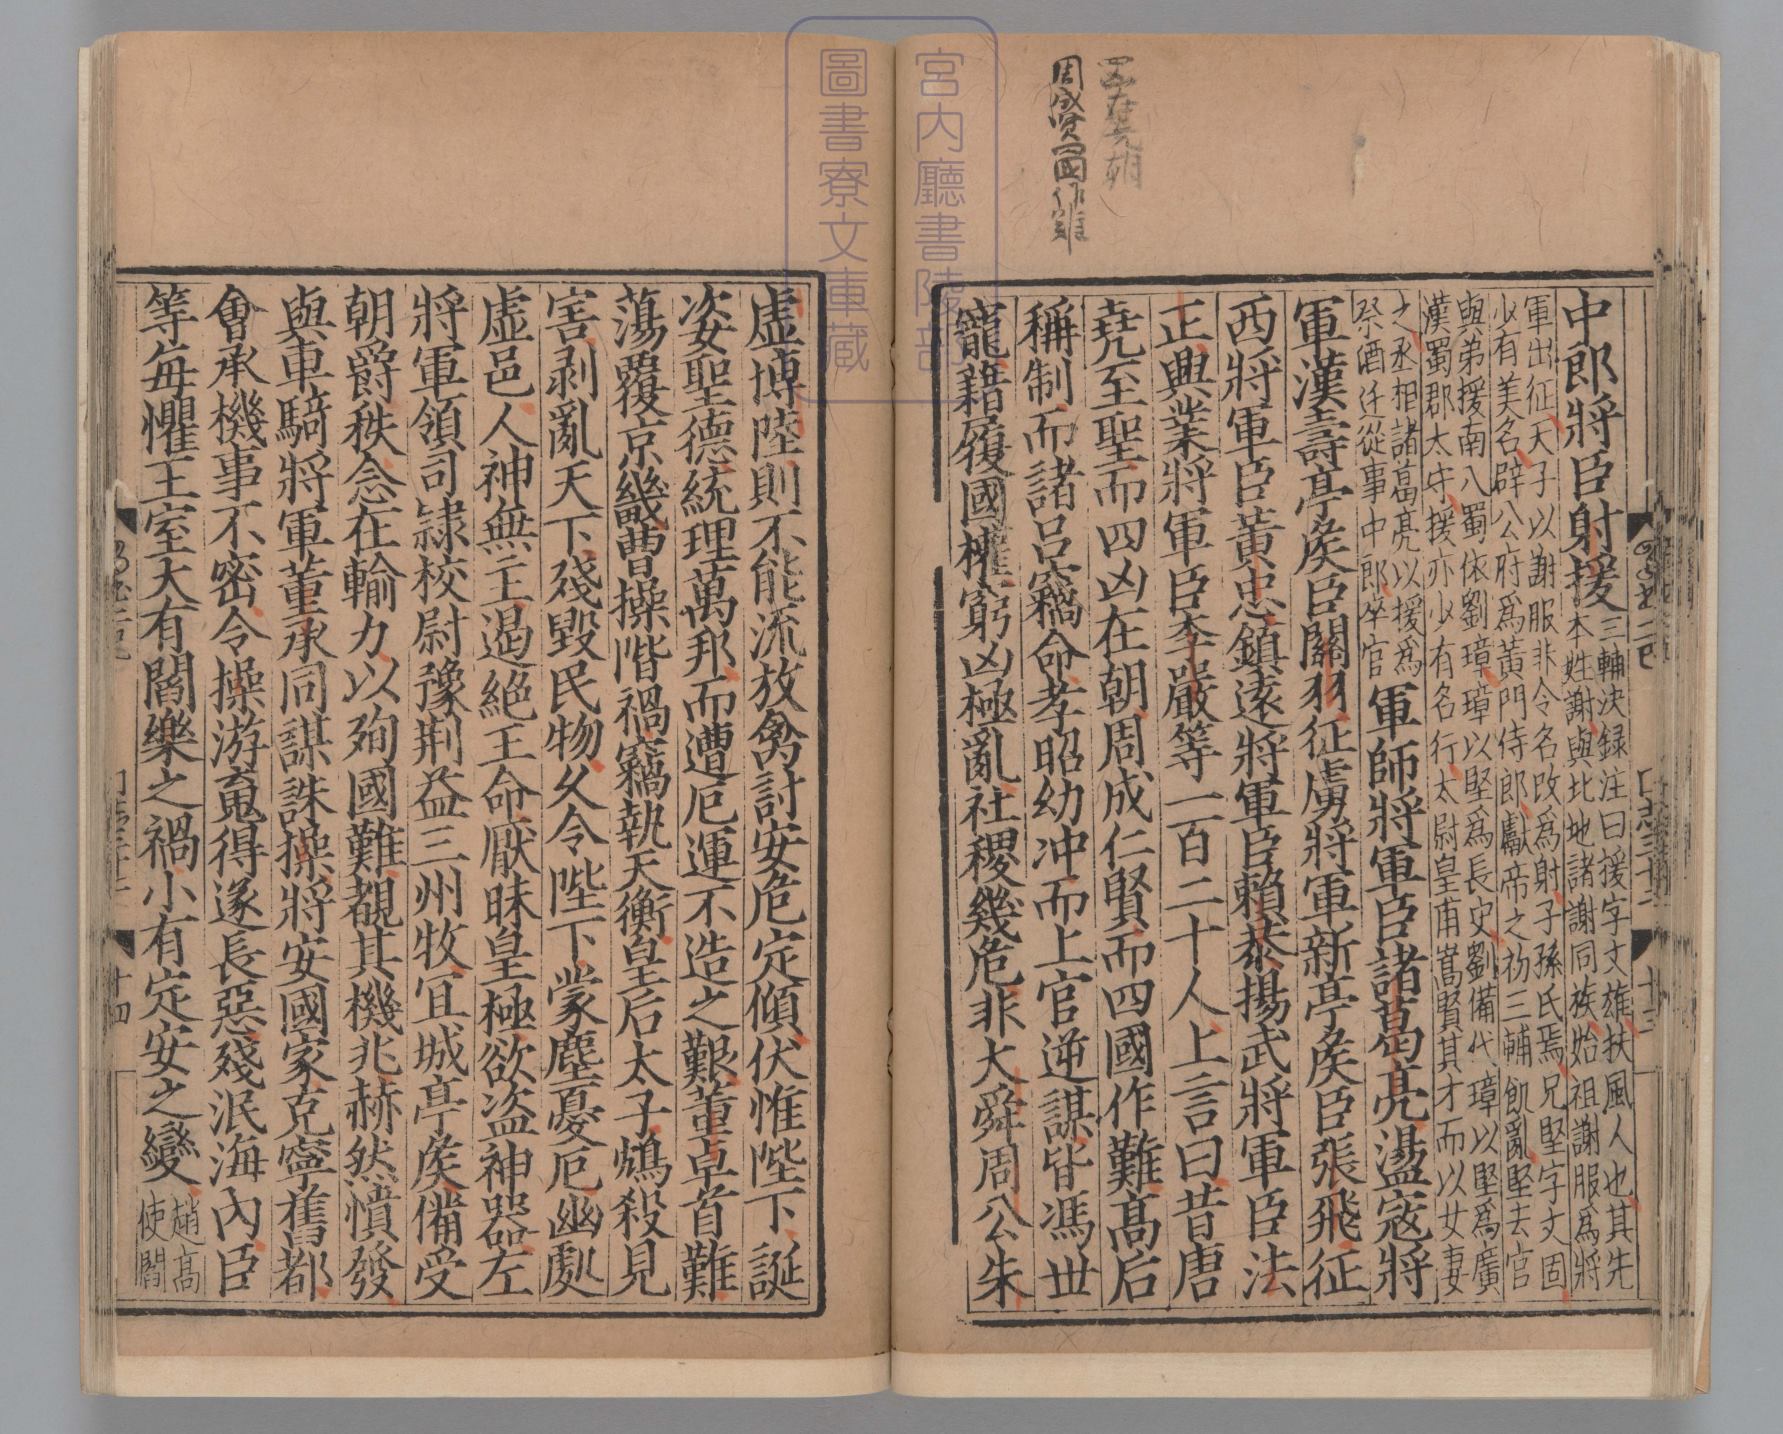 中郎將臣射援
三輔決録注曰援字文雄扶風人也其先
本姓謝與北地諸謝同族始祖謝服爲將
軍出征天子以謝服非令名改爲射子孫氏焉兄堅字文固
少有美名辟公府爲黃門侍郎獻帝之初三輔飢亂堅去官
與弟援南入蜀依劉璋璋以堅爲長史劉備代璋以堅爲廣
漢蜀郡太守援亦少有名行太尉皇甫嵩賢其才而以女妻
之丞相諸葛亮以援爲
祭酒迁從事中郎卒官
軍師將軍臣諸葛亮盪寇將
軍漢壽亭侯臣關羽征虜將軍新亭侯臣張飛征
西將軍臣黃忠鎮遠將軍臣賴恭揚武將軍臣法
正興業將軍臣李嚴等一百二十人上言曰昔唐
堯至聖而四凶在朝周成仁賢而四國作難高后
稱制而諸呂竊命孝昭幼冲而上官逆謀皆馮世
寵藉履國權窮凶極亂社稷幾危非大舜周公朱
虛博陸則不能流放禽討安危定傾伏惟陛下誕
姿聖德統理萬邦而遭厄運不造之艱董卓首難
蕩覆京畿曹操階禍竊執天衡皇后太子鴆殺見
害剥亂天下殘毀民物乆令陛下蒙塵憂厄幽處
虛邑人神無主遏絕王命厭昧皇極欲盜神器左
將軍領司隷校尉豫荆益三州牧冝城亭侯備受
朝爵秩念在輸力以殉國難覩其機兆赫然憤發
與車騎將軍董承同謀誅操將安國家克寧舊都
會承機事不密令操游䰟得遂長惡殘泯海內臣
等每懼王室大有閻樂之禍小有定安之變
趙高
使閻
十四
周成賢四國作難
宮内廳書陵部
圖書寮文庫藏